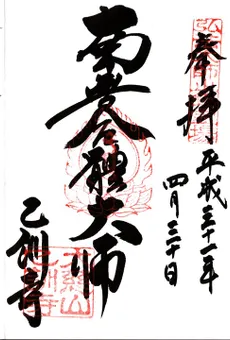 奉拝
平成三十一年
四月三十日
南無合體大師
乙訓寺